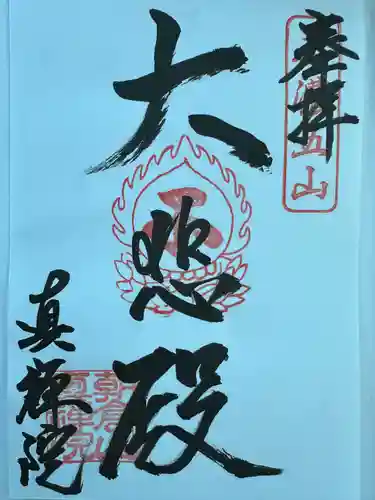 奉拝
五山
大悲殿
真輝院